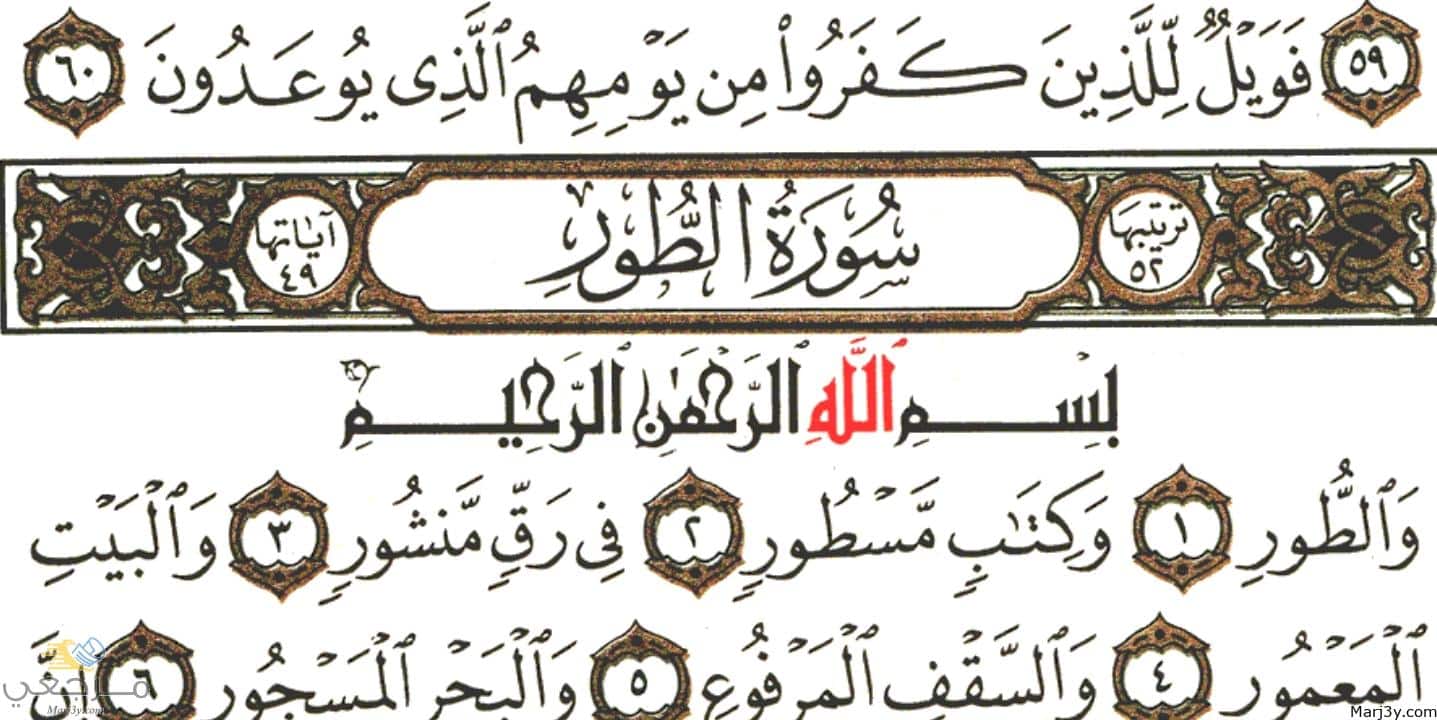 ٥٩ فَوَيْلٌ لِّلَّذِينَ كَفَرُوا۟ مِن يَوْمِهِمُ ٱلَّذِى يُوعَدُونَ ٦٠
ترتيبها ٥٢
سُورَةُ الطُّورِ
آياتها ٤٩
بِسْمِ ٱللَّهِ ٱلرَّحْمَٰنِ ٱلرَّحِيمِ
وَٱلطُّورِ ١ وَكِتَٰبٍ مَّسْطُورٍ ٢ فِى رَقٍّ مَّنشُورٍ ٣ وَٱلْبَيْتِ
ٱلْمَعْمُورِ ٤ وَٱلسَّقْفِ ٱلْمَرْفُوعِ ٥ وَٱلْبَحْرِ ٱلْمَسْجُورِ ٦ إِنَّ
مرجعي
Marj3y.com
Marj3y.com